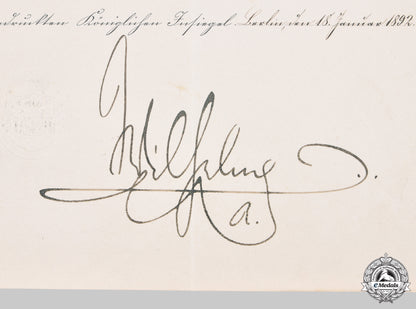 druckten Königlichen Insiegel. Berlin, den 18. Januar 1892.
Wilhelm
R.
a.
eMedals